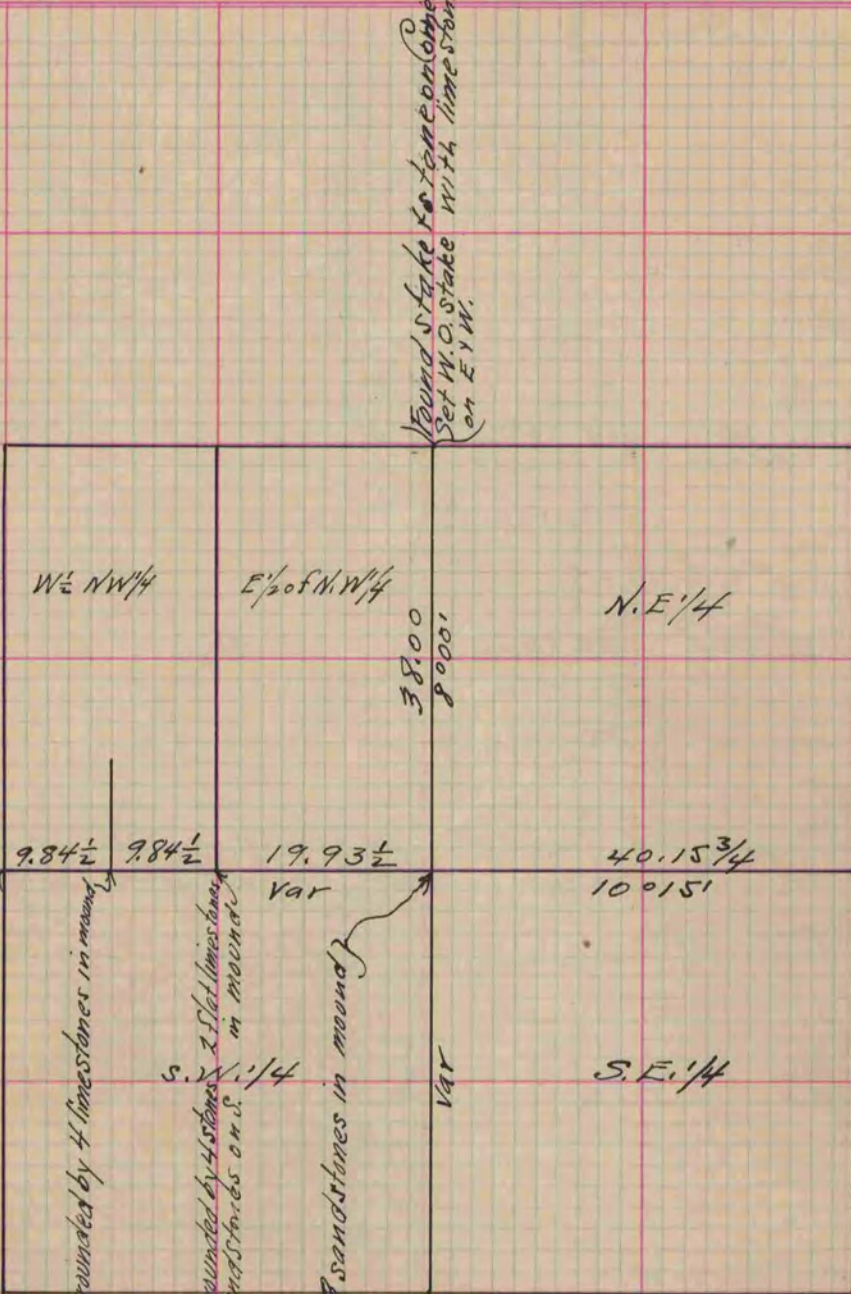 Found stake & stone on
Set W.O. stake with limeston
on E & W.
W½ NW1/4
E1/2 of N.W1/4
N.E1/4
38.00
8°00'
9.84½
9.84½
19.93½
Var
40.15¾
10°15'
rounded by 4 limestones in mound
rounded by 4 stones 2 flat limestones
ndstones on S. in mound
sandstones in mound
S.W.1/4
Var
S.E.1/4